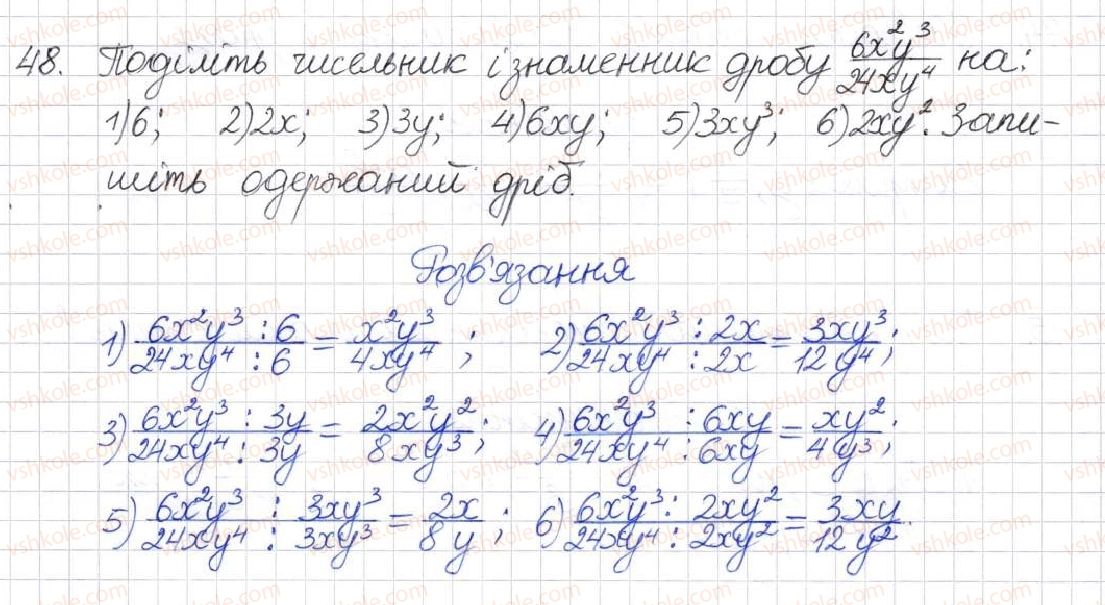 48. Поділіть чисельник і знаменник дробу 6x²y³/24xy⁴ на:
1) 6; 2) 2x; 3) 3y; 4) 6xy; 5) 3xy³; 6) 2xy². Запи-
шіть одержаний дріб.
Розв'язання
1) 6x²y³ : 6 / 24xy⁴ : 6 = x²y³/4xy⁴ ; 2) 6x²y³ : 2x / 24xy⁴ : 2x = 3xy³/12y⁴ ;
3) 6x²y³ : 3y / 24xy⁴ : 3y = 2x²y²/8xy³ ; 4) 6x²y³ : 6xy / 24xy⁴ : 6xy = xy²/4y³ ;
5) 6x²y³ : 3xy³ / 24xy⁴ : 3xy³ = 2x/8y ; 6) 6x²y³ : 2xy² / 24xy⁴ : 2xy² = 3xy/12y² .